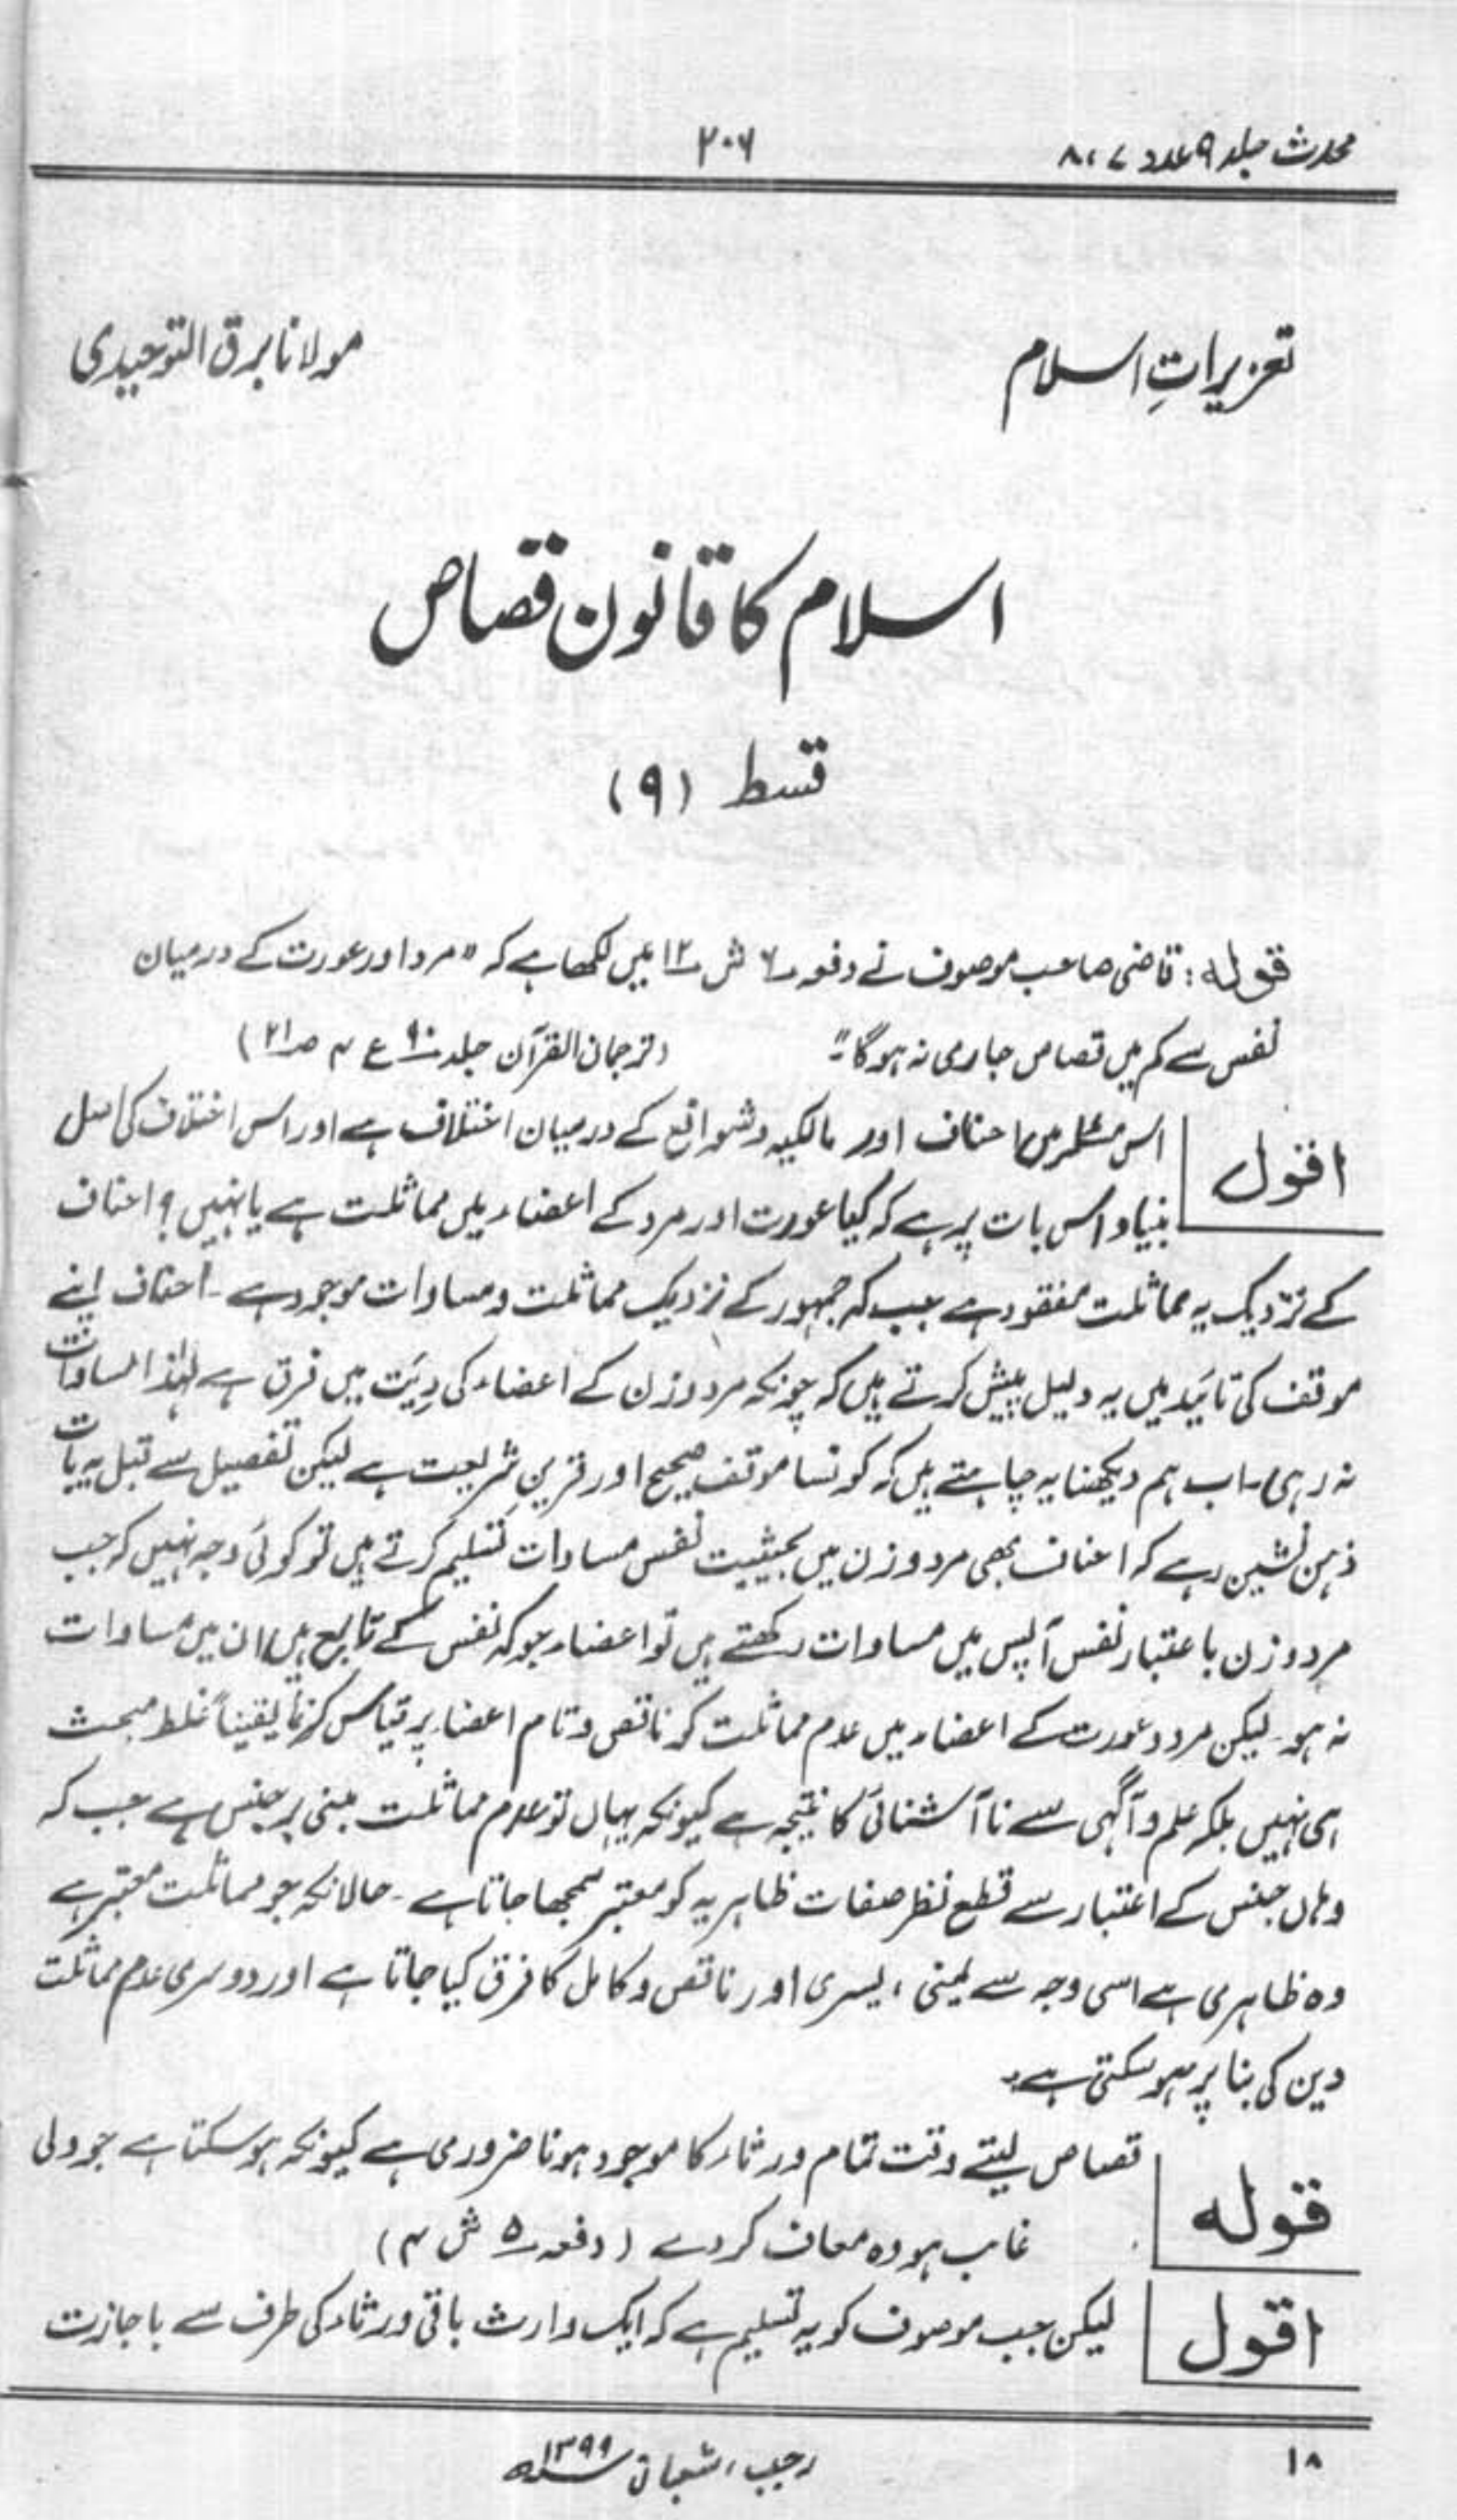 محدث جلد ۹ عدد ۷، ۸
۲۰۶
تعزیراتِ اسلام
مولانا برق التوحیدی
اسلام کا قانون قصاص
قسط (۹)
قولہ : قاضی صاحب موصوف نے دفعہ ۶ ش ۱۲ میں لکھا ہے کہ "مرد اور عورت کے درمیان
نفس سے کم میں قصاص جاری نہ ہوگا" (ترجمان القرآن جلد ۹۰ ع ۴ صہ ۲۱)
اقول
اس مسئلہ میں احناف اور مالکیہ و شوافع کے درمیان اختلاف ہے اور اس اختلاف کی اصل
بنیاد اس بات پر ہے کہ کیا عورت اور مرد کے اعضاء میں مماثلت ہے یا نہیں؟ احناف
کے نزدیک یہ مماثلت مفقود ہے جب کہ جمہور کے نزدیک مماثلت و مساوات موجود ہے۔ احناف اپنے
موقف کی تائید میں یہ دلیل پیش کرتے ہیں کہ چونکہ مرد و زن کے اعضاء کی دِیَت میں فرق ہے لہٰذا مساوات
نہ رہی۔ اب ہم دیکھنا یہ چاہتے ہیں کہ کونسا موقف صحیح اور قرینِ شریعت ہے لیکن تفصیل سے قبل یہ بات
ذہن نشین رہے کہ احناف بھی مرد و زن میں بحیثیت نفس مساوات تسلیم کرتے ہیں تو کوئی وجہ نہیں کہ جب
مرد و زن باعتبار نفس آپس میں مساوات رکھتے ہیں تو اعضاء جو کہ نفس کے تابع ہیں ان میں مساوات
نہ ہو۔ لیکن مرد و عورت کے اعضاء میں عدم مماثلت کو ناقص و تام اعضاء پر قیاس کرنا یقیناً غلط مبحث
ہی نہیں بلکہ علم و آگہی سے ناآشنائی کا نتیجہ ہے کیونکہ یہاں تو عدم مماثلت مبنی بر جنس ہے جب کہ
وہاں جنس کے اعتبار سے قطع نظر صفات ظاہریہ کو معتبر سمجھا جاتا ہے۔ حالانکہ جو مماثلت معتبر ہے
وہ ظاہری ہے اسی وجہ سے یمنی، یسری اور ناقص و کامل کا فرق کیا جاتا ہے اور دوسری عدم مماثلت
دین کی بنا پر ہو سکتی ہے۔
قولہ
قصاص لیتے وقت تمام ورثاء کا موجود ہونا ضروری ہے کیونکہ ہو سکتا ہے جو ولی
غائب ہو وہ معاف کر دے (دفعہ ۵ ش ۴)
اقول
لیکن جب موصوف کو یہ تسلیم ہے کہ ایک وارث باقی ورثاء کی طرف سے با جازت
رجب، شعبان ۱۳۹۹ھ
۱۸